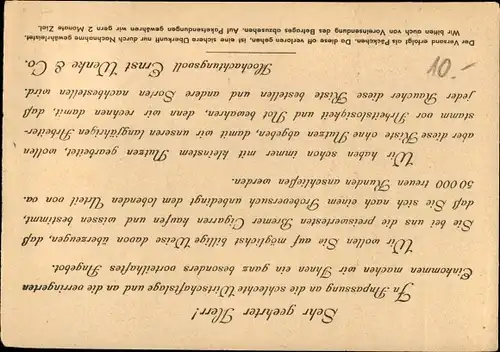 Sehr geehrter Herr!
In Anpassung an die schlechte Wirtschaftslage und an die verringerten
Einkommen machen wir Ihnen ein ganz besonders vorteilhaftes Angebot.
Wir wollen Sie auf möglichst billige Weise davon überzeugen, daß
Sie bei uns die preiswertesten Bremer Cigarren kaufen und wissen bestimmt,
daß Sie sich nach einem Probeversuch unbedingt dem lobenden Urteil von ca.
50 000 treuen Kunden anschließen werden.
Wir haben schon immer mit kleinstem Nutzen gearbeitet, wollen
aber diese Kiste ohne Nutzen abgeben, damit wir unseren langjährigen Arbeiter-
stamm vor Arbeitslosigkeit und Not bewahren, denn wir rechnen damit, daß
jeder Raucher diese Kiste bestellen und andere Sorten nachbestellen wird.
Hochachtungsvoll Ernst Wenke & Co.
Der Versand erfolgt als Päckchen. Da diese oft verloren gehen, ist eine sichere Überkunft nur durch Nachnahme gewährleistet.
Wir bitten auch von Voreinsendung des Betrages abzusehen. Auf Paketsendungen gewähren wir gern 2 Monate Ziel.
10.-